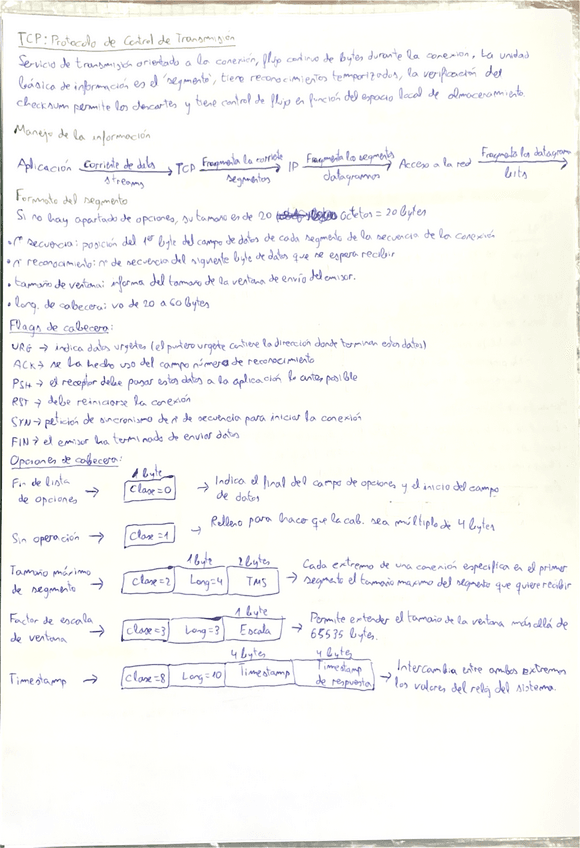 TCP: Protocolo de Control de Transmisión
Servicio de transmisión orientado a la conexión, flujo continuo de bytes durante la conexión. La unidad
básica de información es el "segmento", tiene reconocimientos temporizados, la verificación del
checksum permite los descartes y tiene control de flujo en función del espacio local de almacenamiento.
Manejo de la información
Aplicación corriente de datos → TCP Fragmenta la corriente → IP Fragmenta los segmentos → Acceso a la red Fragmenta los datagramas →
streams segmentos datagramas bits
Formato del segmento
Si no hay apartado de opciones, su tamaño es de 20 octetos = 20 bytes
• nº secuencia: posición del 1er byte del campo de datos de cada segmento de la secuencia de la conexión
• nº reconocimiento: nº de secuencia del siguiente byte de datos que se espera recibir
• tamaño de ventana: informa del tamaño de la ventana de envío del emisor.
• long. de cabecera: va de 20 a 60 bytes
Flags de cabecera:
URG → indica datos urgentes (el puntero urgente contiene la dirección donde terminan estos datos)
ACK → se ha hecho uso del campo número de reconocimiento
PSH → el receptor debe pasar estos datos a la aplicación lo antes posible
RST → debe reiniciarse la conexión
SYN → petición de sincronismo de nº de secuencia para iniciar la conexión
FIN → el emisor ha terminado de enviar datos
Opciones de cabecera:
1 byte
Fin de lista de opciones → Clase=0 → Indica el final del campo de opciones y el inicio del campo
de datos
Sin operación → Clase=1 → Relleno para hacer que la cab. sea múltiplo de 4 bytes
1 byte 2 bytes
Tamaño máximo de segmento → Clase=2 Long=4 TMS → Cada extremo de una conexión especifica en el primer
segmento el tamaño maximo del segmento que quiere recibir
1 byte
Factor de escala de ventana → Clase=3 Long=3 Escala → Permite extender el tamaño de la ventana más allá de
65535 bytes.
4 bytes 4 bytes
Timestamp → Clase=8 Long=10 Timestamp Timestamp de respuesta → Intercambia entre ambos extremos
los valores del reloj del sistema.